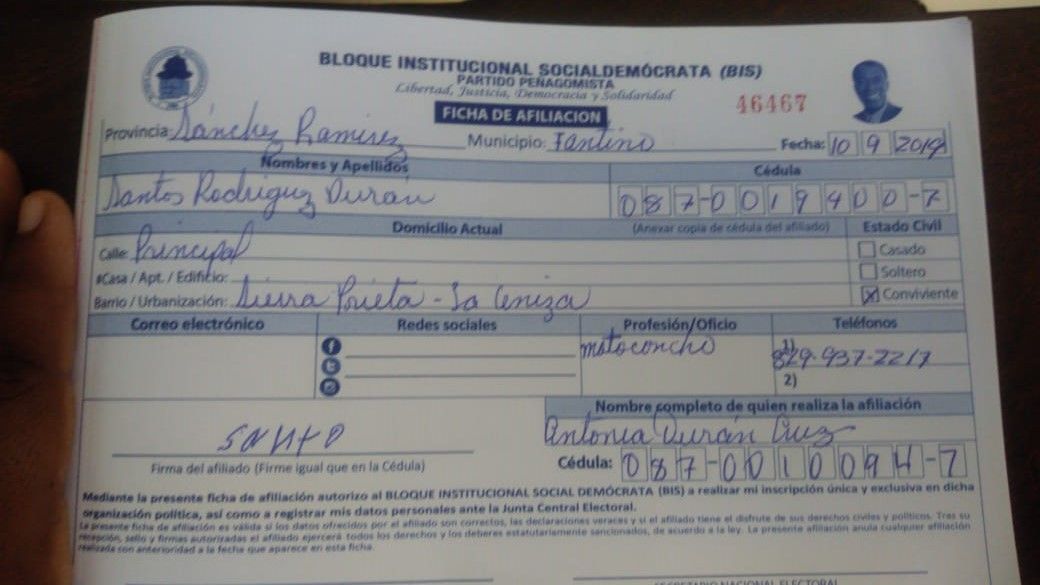 BLOQUE INSTITUCIONAL SOCIALDEMÓCRATA (BIS)
PARTIDO PEÑAGOMISTA
Libertad, Justicia, Democracia y Solidaridad
46467
FICHA DE AFILIACION
Provincia: Sánchez Ramirez Municipio: Fantino Fecha: 10 9 2019
Nombres y Apellidos Cédula
Santos Rodriguez Durán 087-0019400-7
Domicilio Actual (Anexar copia de cédula del afiliado) Estado Civil
Calle: Principal Casado
#Casa / Apt. / Edificio: Soltero
Barrio / Urbanización: Sierra Prieta - La Ceniza X Conviviente
Correo electrónico Redes sociales Profesión/Oficio Teléfonos
motoconcho 1) 829-937-2217
2)
Nombre completo de quien realiza la afiliación
Santo Antonia Durán Cruz
Firma del afiliado (Firme igual que en la Cédula) Cédula: 087-0010094-7
Mediante la presente ficha de afiliación autorizo al BLOQUE INSTITUCIONAL SOCIAL DEMÓCRATA (BIS) a realizar mi inscripción única y exclusiva en dicha
organización política, así como a registrar mis datos personales ante la Junta Central Electoral.
La presente ficha de afiliación es válida si los datos ofrecidos por el afiliado son correctos, las declaraciones veraces y si el afiliado tiene el disfrute de sus derechos civiles y políticos. Tras su
recepción, sello y firmas autorizadas el afiliado ejercerá todos los derechos y los deberes estatutariamente sancionados, de acuerdo a la ley. La presente afiliación anula cualquier afiliación
realizada con anterioridad a la fecha que aparece en esta ficha.
SECRETARIO NACIONAL ELECTORAL